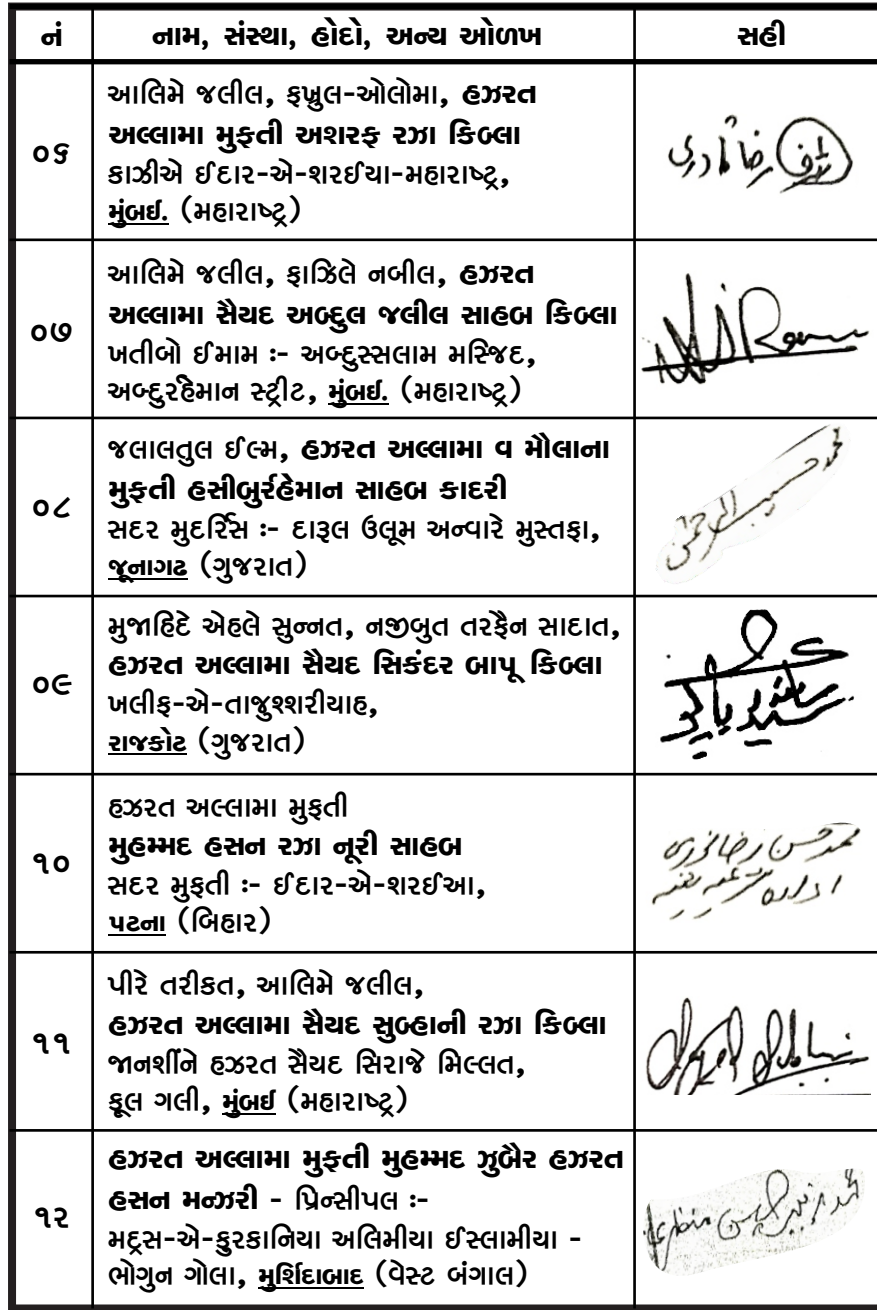 નં નામ, સંસ્થા, હોદો, અન્ય ઓળખ સહી
૦૬
આલિમે જલીલ, ફખ્રુલ-ઓલોમા, હઝરત
અલ્લામા મુફતી અશરફ રઝા કિબ્લા
કાઝીએ ઈદાર-એ-શરઈયા-મહારાષ્ટ્ર,
મુંબઈ. (મહારાષ્ટ્ર)
૦૭
આલિમે જલીલ, ફાઝિલે નબીલ, હઝરત
અલ્લામા સૈયદ અબ્દુલ જલીલ સાહબ કિબ્લા
ખતીબો ઈમામ :- અબ્દુસ્સલામ મસ્જિદ,
અબ્દુરહેમાન સ્ટ્રીટ, મુંબઈ. (મહારાષ્ટ્ર)
૦૮
જલાલતુલ ઈલ્મ, હઝરત અલ્લામા વ મૌલાના
મુફતી હસીબુર્રહેમાન સાહબ કાદરી
સદર મુદર્રિસ :- દારૂલ ઉલૂમ અન્વારે મુસ્તફા,
જૂનાગઢ (ગુજરાત)
محمد حسیب الرحمن
૦૯
મુજાહિદે એહલે સુન્નત, નજીબુત તરફૈન સાદાત,
હઝરત અલ્લામા સૈયદ સિકંદર બાપૂ કિબ્લા
ખલીફ-એ-તાજુશ્શરીયાહ,
રાજકોટ (ગુજરાત)
૧૦
હઝરત અલ્લામા મુફતી
મુહમ્મદ હસન રઝા નૂરી સાહબ
સદર મુફતી :- ઈદાર-એ-શરઈઆ,
પટના (બિહાર)
محمد حسن رضا نوری
ادارہ شرعیہ پٹنہ
૧૧
પીરે તરીકત, આલિમે જલીલ,
હઝરત અલ્લામા સૈયદ સુબ્હાની રઝા કિબ્લા
જાનશીંને હઝરત સૈયદ સિરાજે મિલ્લત,
ફૂલ ગલી, મુંબઈ (મહારાષ્ટ્ર)
૧૨
હઝરત અલ્લામા મુફતી મુહમ્મદ ઝુબૈર હઝરત
હસન મન્ઝરી - પ્રિન્સીપલ :-
મદ્રસ-એ-ફુરકાનિયા અલિમીયા ઈસ્લામીયા -
ભોગુન ગોલા, મુર્શિદાબાદ (વેસ્ટ બંગાલ)